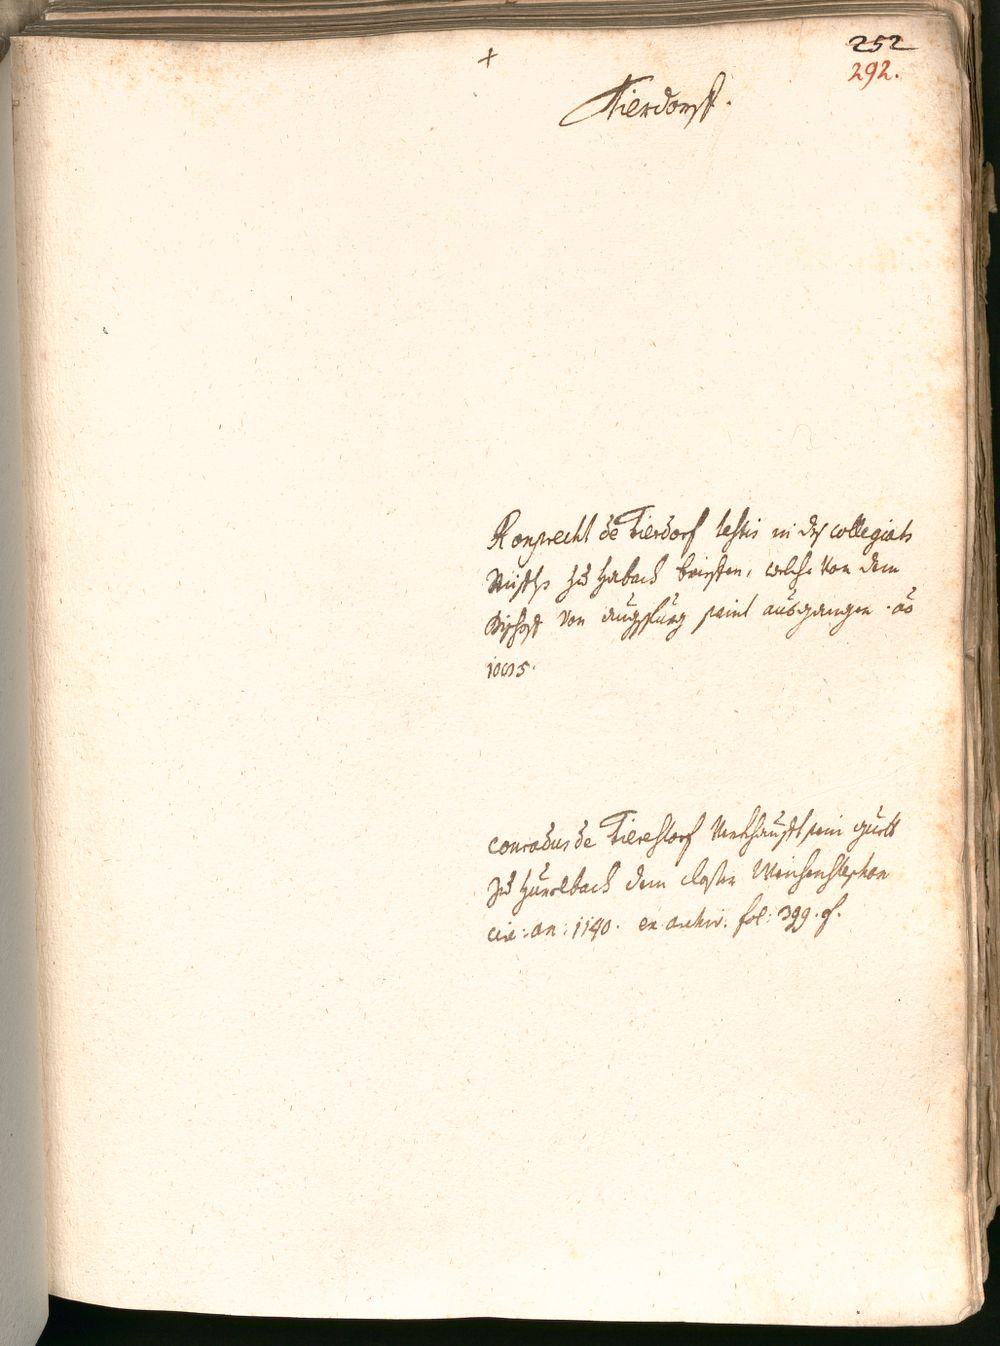 +
252
292.
Tierdorff.
Ruprecht de Tierdorf testis in des collegiats
stiffts zu Habach brieffen, welche von dem
Bischoff von Augspurg seint ausgangen. ao
1085.
conradus de Tierestorf verkhaufft sein guett
zu Hünelbach dem closter Weichenstephan
cir: an: 1140. ex archiv. fol: 399. f.